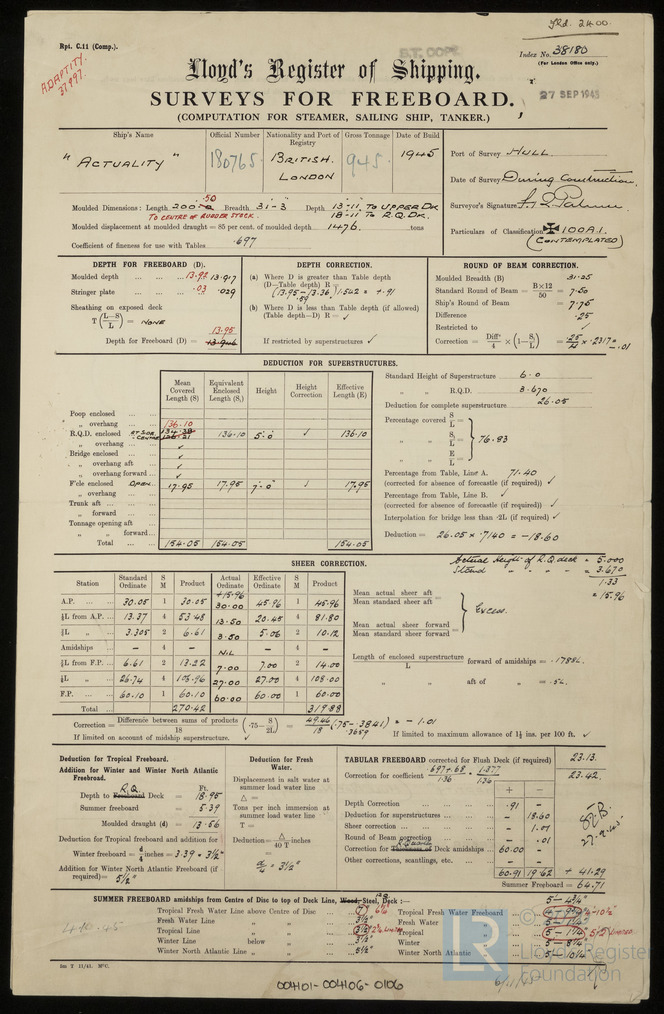 Fbd. 2400.
Rpt. C.11 (Comp.).
ADAPTITY.
37997.
Index No. 38180
(For London Office only.)
Lloyd's Register of Shipping.
27 SEP 1945
SURVEYS FOR FREEBOARD.
(COMPUTATION FOR STEAMER, SAILING SHIP, TANKER.)
Ship's Name Official Number Nationality and Port of Registry Gross Tonnage Date of Build
"ACTUALITY" 180765. BRITISH. LONDON 945. 1945
Port of Survey HULL.
Date of Survey During Construction.
Surveyor's Signature
Particulars of Classification ✠ 100A.1.
(CONTEMPLATED)
Moulded Dimensions: Length 200 .50 Breadth 31-3 Depth 13-11 To UPPER DK
TO CENTRE OF RUDDER STOCK. 18-11 To R.Q.DK.
Moulded displacement at moulded draught = 85 per cent. of moulded depth 1476. tons
Coefficient of fineness for use with Tables .697
DEPTH FOR FREEBOARD (D).
Moulded depth ... 13.92 13.917
Stringer plate ... .03 .029
Sheathing on exposed deck
T (L-S/L) = NONE
13.95
Depth for Freeboard (D) = 13.946
DEPTH CORRECTION.
(a) Where D is greater than Table depth
(D—Table depth) R =
(13.95-13.36) 1.542 = +.91
.59
(b) Where D is less than Table depth (if allowed)
(Table depth—D) R = ✓
If restricted by superstructures ✓
ROUND OF BEAM CORRECTION.
Moulded Breadth (B) 31.25
Standard Round of Beam = B×12/50 = 7.50
Ship's Round of Beam = 7.75
Difference .25
Restricted to ✓
Correction = Diffce/4 × (1-S1/L) = .25/4 × .2317 = -.01
DEDUCTION FOR SUPERSTRUCTURES.
Mean Covered Length (S) Equivalent Enclosed Length (S1) Height Height Correction Effective Length (E)
Poop enclosed
„ overhang 136.10
R.Q.D. enclosed 136.10 5.0 ✓ 136.10
„ overhang ✓
Bridge enclosed ✓
„ overhang aft ✓
„ overhang forward ✓
F'cle enclosed OPEN. 17.95 17.95 7.0 ✓ 17.95
„ overhang
Trunk aft
„ forward
Tonnage opening aft
„ „ forward
Total 154.05 154.05 154.05
Standard Height of Superstructure 6.0
„ „ R.Q.D. 3.670
Deduction for complete superstructure 26.05
Percentage covered S/L =
„ „ S1/L = 76.83
„ „ E/L =
Percentage from Table, Line A. 71.40
(corrected for absence of forecastle (if required)) ✓
Percentage from Table, Line B. ✓
(corrected for absence of forecastle (if required)) ✓
Interpolation for bridge less than ·2L (if required) ✓
Deduction = 26.05 × .7140 = -18.60
SHEER CORRECTION.
Actual Height of R.Q deck = 5.000
Stand „ „ „ = 3.670
1.33
= 15.96
Station Standard Ordinate S M Product Actual Ordinate Effective Ordinate S M Product
+15.96
A.P. 30.05 1 30.05 30.00 45.96 1 45.96
⅙L from A.P. 13.37 4 53.48 13.50 20.45 4 81.80
⅓L „ 3.305 2 6.61 3.50 5.06 2 10.12
Amidships - 4 - NIL - 4 -
⅓L from F.P. 6.61 2 13.22 7.00 7.00 2 14.00
⅙L „ 26.74 4 106.96 27.00 27.00 4 108.00
F.P. 60.10 1 60.10 60.00 60.00 1 60.00
Total 270.42 319.88
Mean actual sheer aft =
Mean standard sheer aft
Excess.
Mean actual sheer forward =
Mean standard sheer forward
Length of enclosed superstructure/L forward of amidships = .1788L.
„ aft of „ = .5L.
Correction = Difference between sums of products/18 (·75-S/2L) = 49.46/18 (.75-.3841) = -1.01
.3659
If limited on account of midship superstructure. ✓
If limited to maximum allowance of 1½ ins. per 100 ft. ✓
Deduction for Tropical Freeboard.
Addition for Winter and Winter North Atlantic Freeboard.
Ft.
Depth to R.Q. Freeboard Deck = 18.95
Summer freeboard = 5.39
Moulded draught (d) = 13.56
Deduction for Tropical freeboard and addition for Winter freeboard = d/4 inches = 3.39 = 3½"
Addition for Winter North Atlantic Freeboard (if required) = 5½"
Deduction for Fresh Water.
Displacement in salt water at summer load water line
Δ =
Tons per inch immersion at summer load water line
T =
Deduction = Δ/40 T inches
=
d/4 = 3½"
TABULAR FREEBOARD corrected for Flush Deck (if required) 23.13.
Correction for coefficient .697+.68/1.36 = 1.377/1.36 23.42.
+ -
Depth Correction .91 -
Deduction for superstructures - 18.60
Sheer correction - 1.01
Round of Beam correction - .01
Correction for R.Q. Thickness of Deck amidships 60.00 -
Other corrections, scantlings, etc. - -
60.91 19.62 + 41.29
Summer Freeboard = 64.71
27.9.45
SUMMER FREEBOARD amidships from Centre of Disc to top of Deck Line, Wood, Steel, Deck :— 5'-4¾"
Tropical Fresh Water Line above Centre of Disc 7" 6½"
Fresh Water Line „ „ 3½"
Tropical Line „ „ 3½"
Winter Line below „ 3½"
Winter North Atlantic Line „ „ 5½"
Tropical Fresh Water Freeboard
Fresh Water „ 5'-1¼"
Tropical „ 5'-1¼"
Winter „ 5'-8¼"
Winter North Atlantic „ 5'-10¼"
© Lloyd's Register Foundation
LR
004101-004106-0106